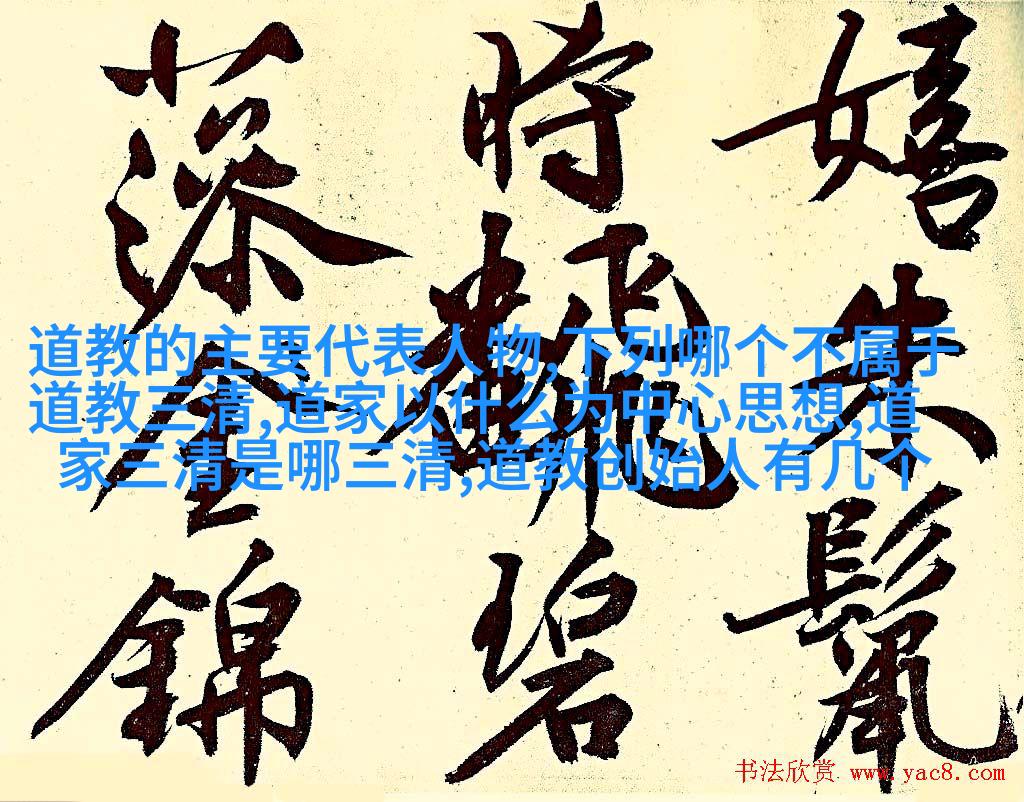 嬉朱鬣
時翻碧
藻全錦
道教的主要代表人物,下列哪个不属于
道教三清,道家以什么为中心思想,道
家三清是哪三清,道教创始人有几个
书法欣赏 www.yac8.com